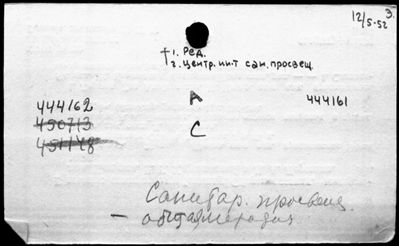 3.
12/5-52
†1. Ред.
2. центр. ин-т сан. просвещ.
444162 А 444161
450713 С
451148
Санитар. просвещ.
—